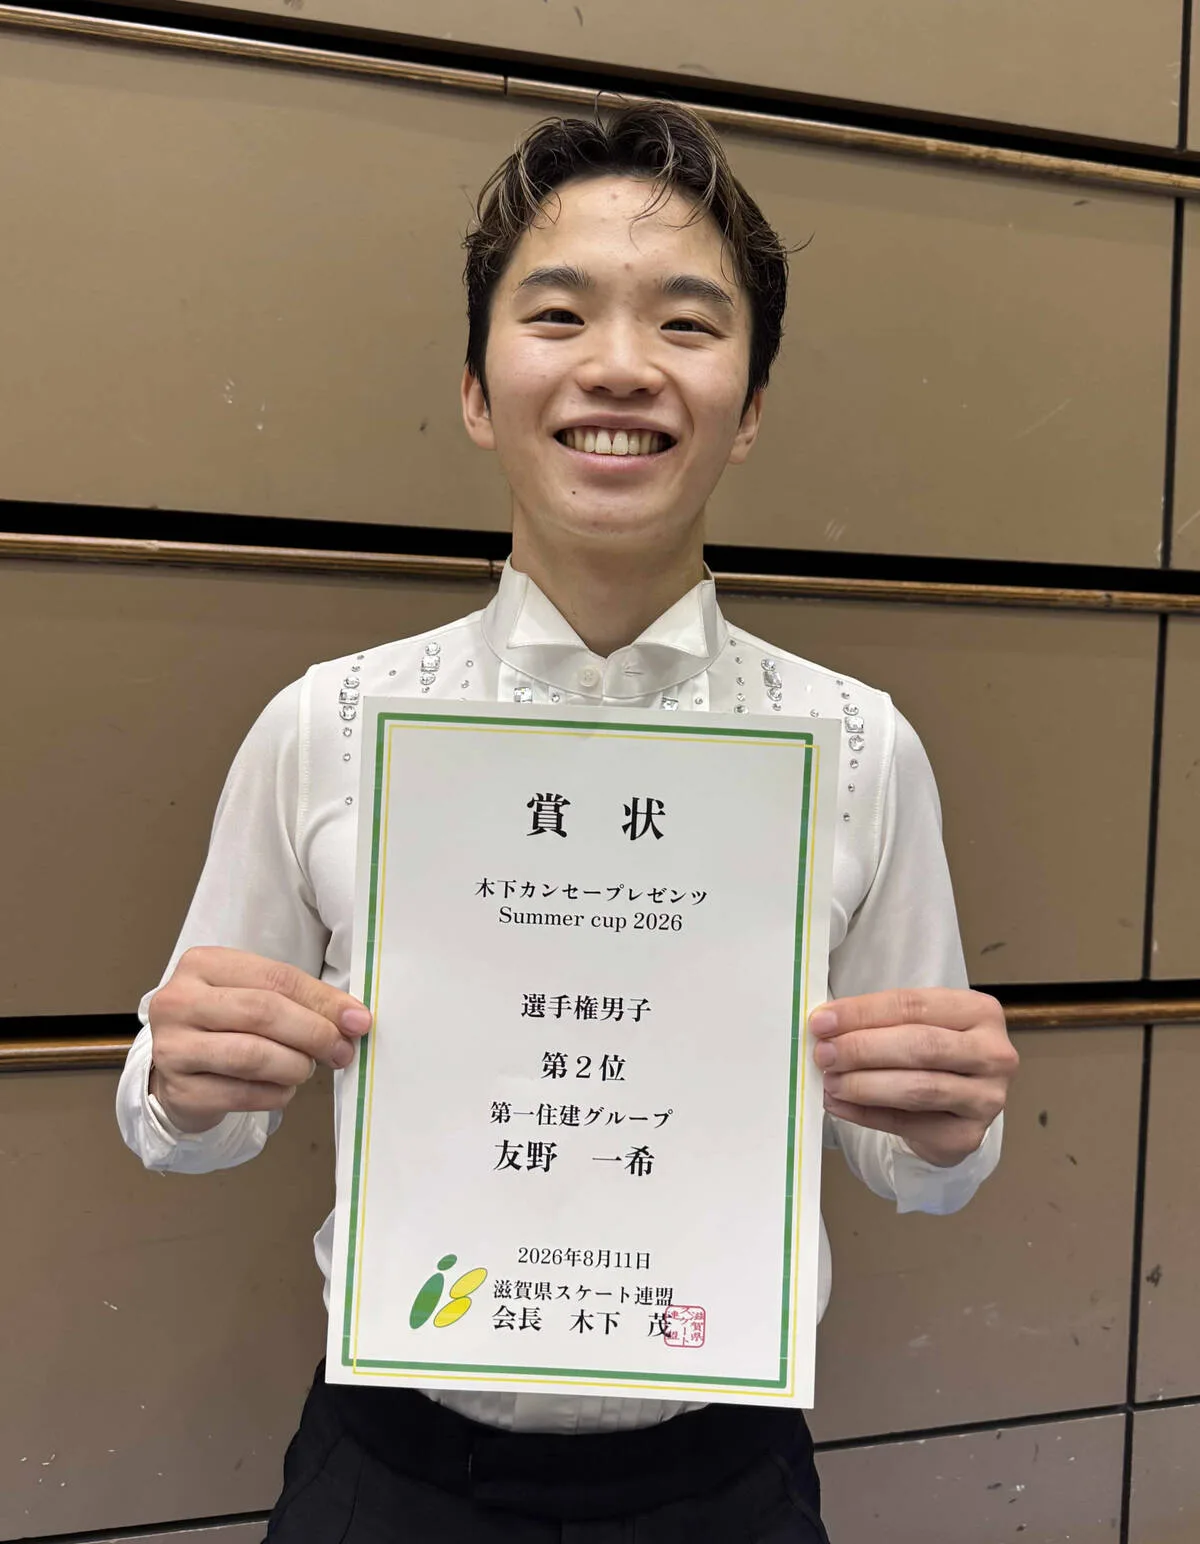 賞 状
木下カンセープレゼンツ
Summer cup 2026
選手権男子
第2位
第一住建グループ
友野 一希
2026年8月11日
滋賀県スケート連盟
会長 木下 茂
滋賀県
スケート
連盟